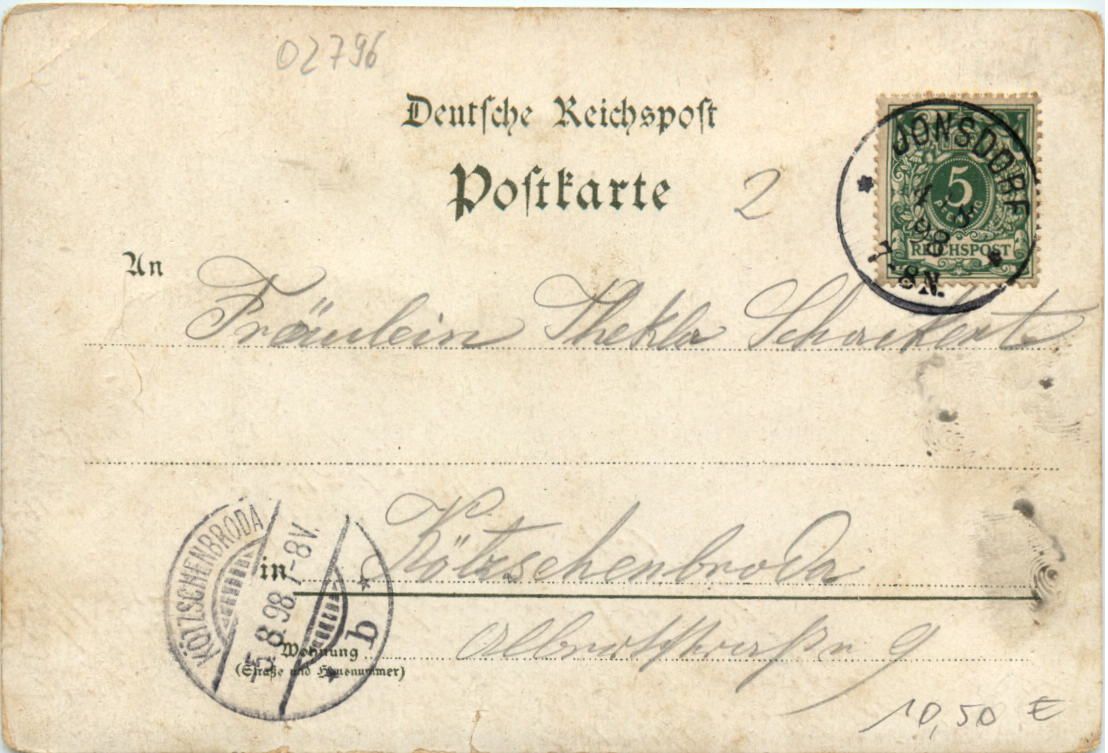 02796
Deutsche Reichspost
Postkarte
2
JONSDORF
4 8
98
7-8N.
5
PFENNIG
REICHSPOST
An
Fräulein Thekla Schackert
KÖTZSCHENBRODA
5.8.98.7-8V.
b
in Kötzschenbroda
Wohnung
(Straße und Hausnummer)
9
10,50 €